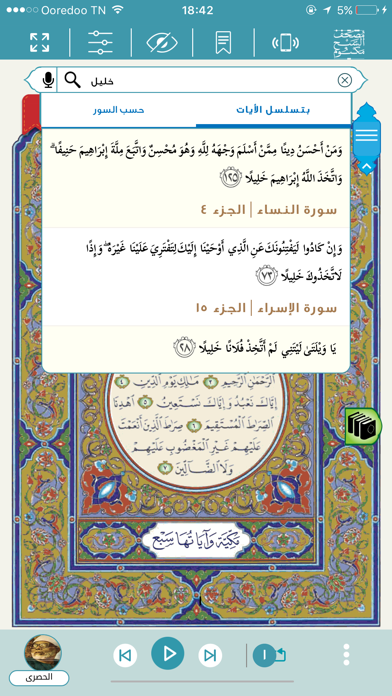 Ooredoo TN 18:42 5%
خليل
بتسلسل الأيات
حسب السور
وَمَنْ أَحْسَنُ دِينًا مِمَّنْ أَسْلَمَ وَجْهَهُ لِلَّهِ وَهُوَ مُحْسِنٌ وَاتَّبَعَ مِلَّةَ إِبْرَاهِيمَ حَنِيفًا ۗ
وَاتَّخَذَ اللَّهُ إِبْرَاهِيمَ خَلِيلًا ﴿١٢٥﴾
سورة النساء | الجزء ٤
وَإِنْ كَادُوا لَيَفْتِنُونَكَ عَنِ الَّذِي أَوْحَيْنَا إِلَيْكَ لِتَفْتَرِيَ عَلَيْنَا غَيْرَهُ ۖ وَإِذًا
لَاتَّخَذُوكَ خَلِيلًا ﴿٧٣﴾
سورة الإسراء | الجزء ١٥
يَا وَيْلَتَىٰ لَيْتَنِي لَمْ أَتَّخِذْ فُلَانًا خَلِيلًا ﴿٢٨﴾
الرَّحْمَٰنِ الرَّحِيمِ ٣ مَالِكِ يَوْمِ الدِّينِ ٤
إِيَّاكَ نَعْبُدُ وَإِيَّاكَ نَسْتَعِينُ ٥ اهْدِنَا
الصِّرَاطَ الْمُسْتَقِيمَ ٦ صِرَاطَ الَّذِينَ أَنْعَمْتَ
عَلَيْهِمْ غَيْرِ الْمَغْضُوبِ عَلَيْهِمْ
وَلَا الضَّالِّينَ ٧
مَكِّيَّة وَآيَاتُهَا سَبْع
١
الحصرى